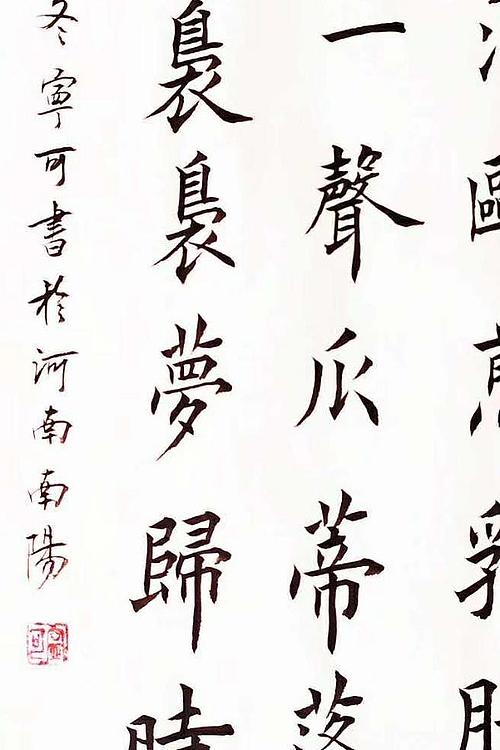 區乳
一聲瓜蒂落
裊裊夢歸時
冬寧可書於河南南陽